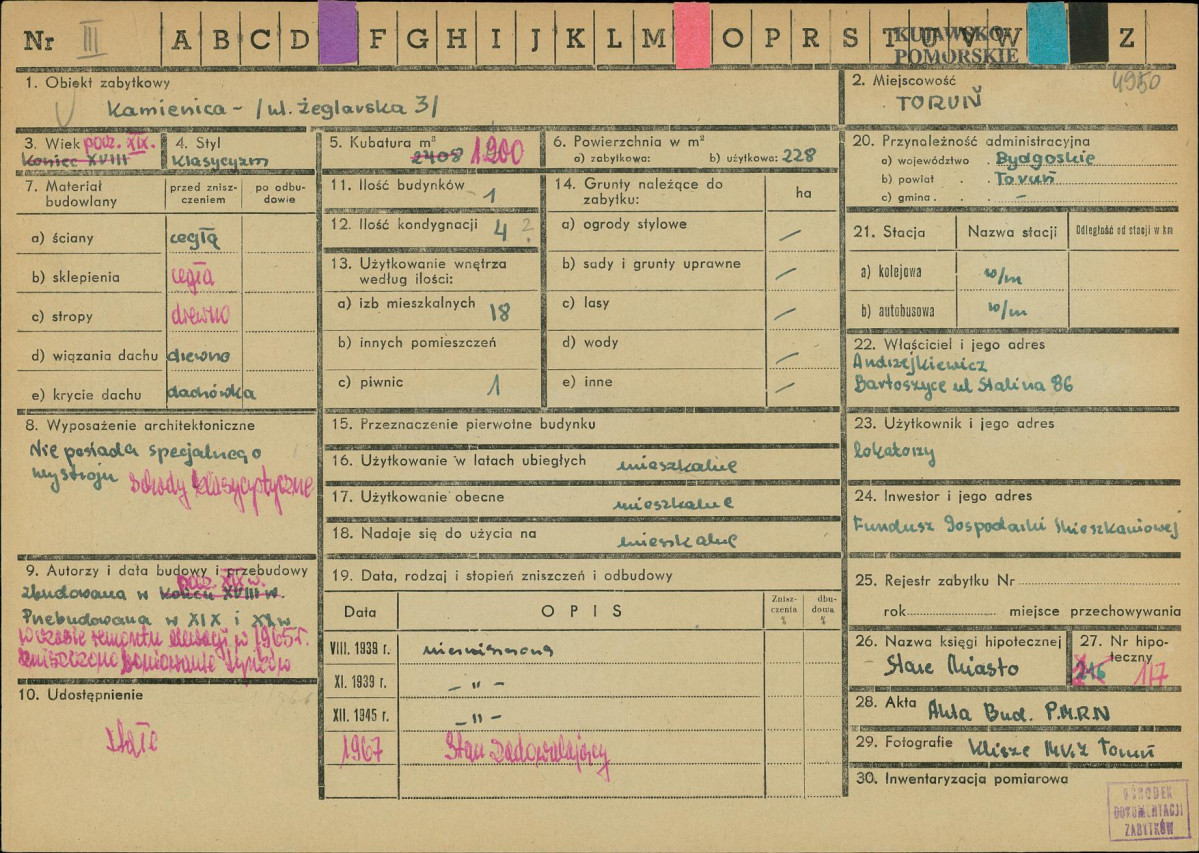 Nr III A B C D F G H I J K L M O P R S T U V W Z
KUJAWSKO-
POMORSKIE
1. Obiekt zabytkowy
Kamienica - /ul. Żeglarska 3/
2. Miejscowość 4950
TORUŃ
3. Wiek pocz. XIX.
Koniec XVIII
4. Styl
Klasycyzm
5. Kubatura m³
2408 1200
6. Powierzchnia w m²
a) zabytkowa: b) użytkowa: 228
7. Materiał budowlany
przed zniszczeniem
po odbudowie
a) ściany cegłą
b) sklepienia cegła
c) stropy drewno
d) wiązania dachu drewno
e) krycie dachu dachówka
8. Wyposażenie architektoniczne
Nie posiada specjalnego
wystroju schody klasycystyczne
9. Autorzy i data budowy i przebudowy
pocz. XIX w.
zbudowana w końcu XVIII w.
Przebudowana w XIX i XX w
w czasie remontu elewacji w 1965 r.
zniszczono boniowanie tynków
10. Udostępnienie
stałe
11. Ilość budynków 1
12. Ilość kondygnacji 4 ?
13. Użytkowanie wnętrza
według ilości:
a) izb mieszkalnych 18
b) innych pomieszczeń
c) piwnic 1
14. Grunty należące do
zabytku:
ha
a) ogrody stylowe /
b) sady i grunty uprawne /
c) lasy /
d) wody /
e) inne /
15. Przeznaczenie pierwotne budynku
16. Użytkowanie w latach ubiegłych mieszkalne
17. Użytkowanie obecne mieszkalne
18. Nadaje się do użycia na mieszkalne
19. Data, rodzaj i stopień zniszczeń i odbudowy
Data OPIS Zniszczenia % dbudowa %
VIII. 1939 r. niezniszczona
XI. 1939 r. - " -
XII. 1945 r. - " -
1967 Stan zadowalający
20. Przynależność administracyjna
a) województwo Bydgoskie
b) powiat . Toruń
c) gmina . -
21. Stacja Nazwa stacji Odległość od stacji w km
a) kolejowa w/m
b) autobusowa w/m
22. Właściciel i jego adres
Andrzejkiewicz
Bartoszyce ul Stalina 86
23. Użytkownik i jego adres
lokatorzy
24. Inwestor i jego adres
Fundusz Gospodarki Mieszkaniowej
25. Rejestr zabytku Nr
rok miejsce przechowywania
26. Nazwa księgi hipotecznej
Stare Miasto
27. Nr hipoteczny
117
28. Akta Akta Bud. P.M.R.N
29. Fotografie Klisze MKZ Toruń
30. Inwentaryzacja pomiarowa
OŚRODEK
DOKUMENTACJI
ZABYTKÓW